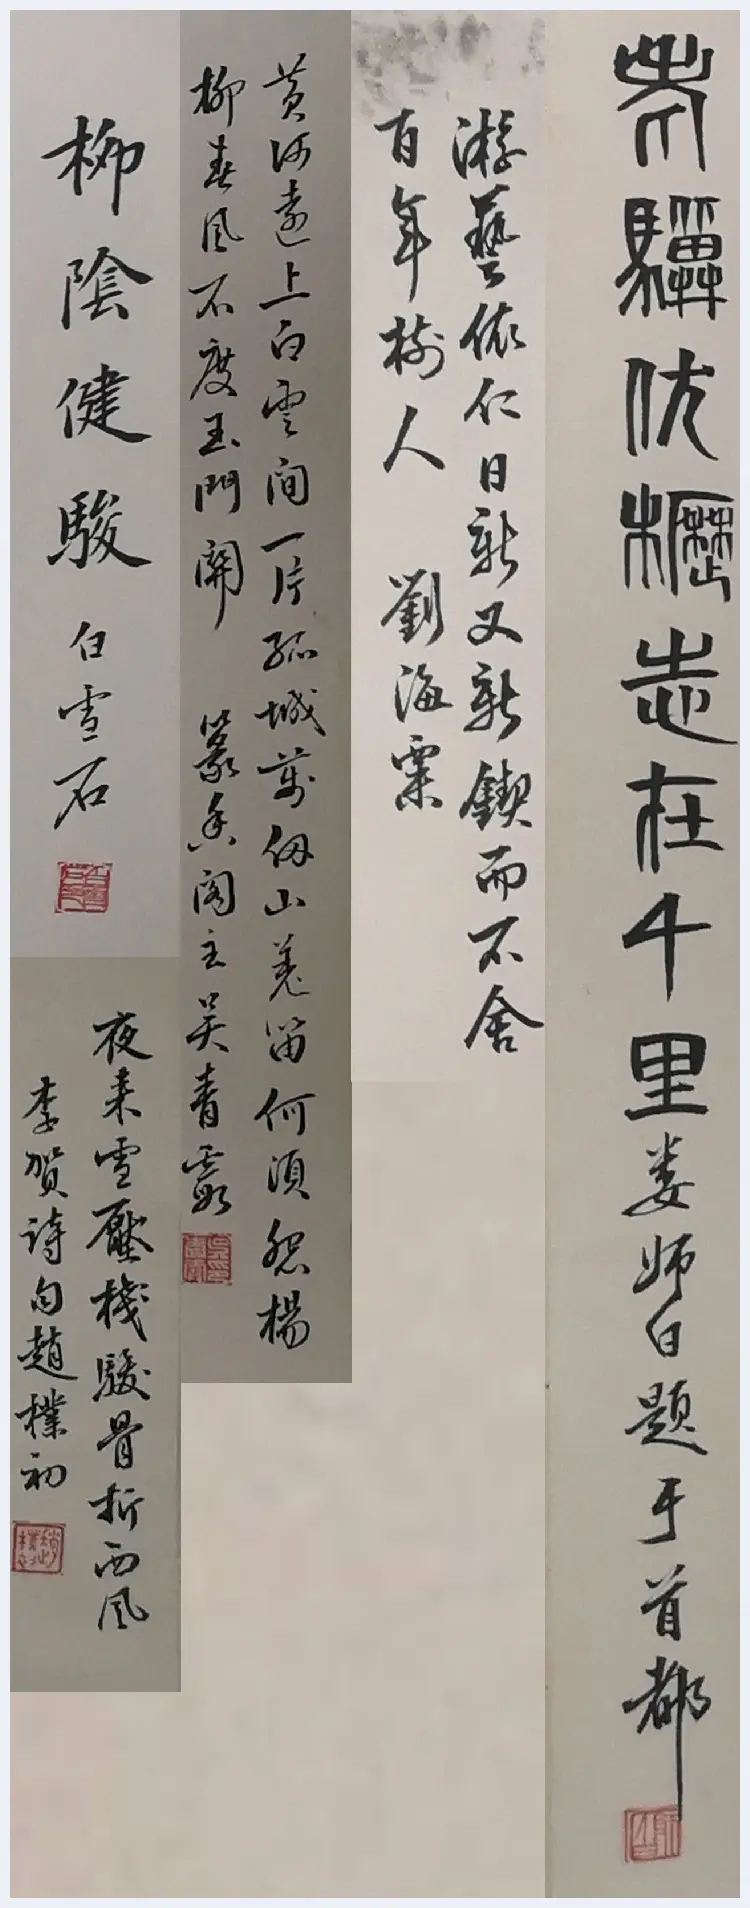 老驥伏櫪志在千里 娄师白题于首都
游藝依仁日新又新鍥而不舍
百年樹人 劉海粟
黄河遠上白雲间一片孤城萬仞山羌笛何須怨楊
柳春风不度玉門關 篆香阁主吴青霞
柳陰健駿 白雪石
夜来雪壓棧駿骨折西风
李贺诗句趙樸初